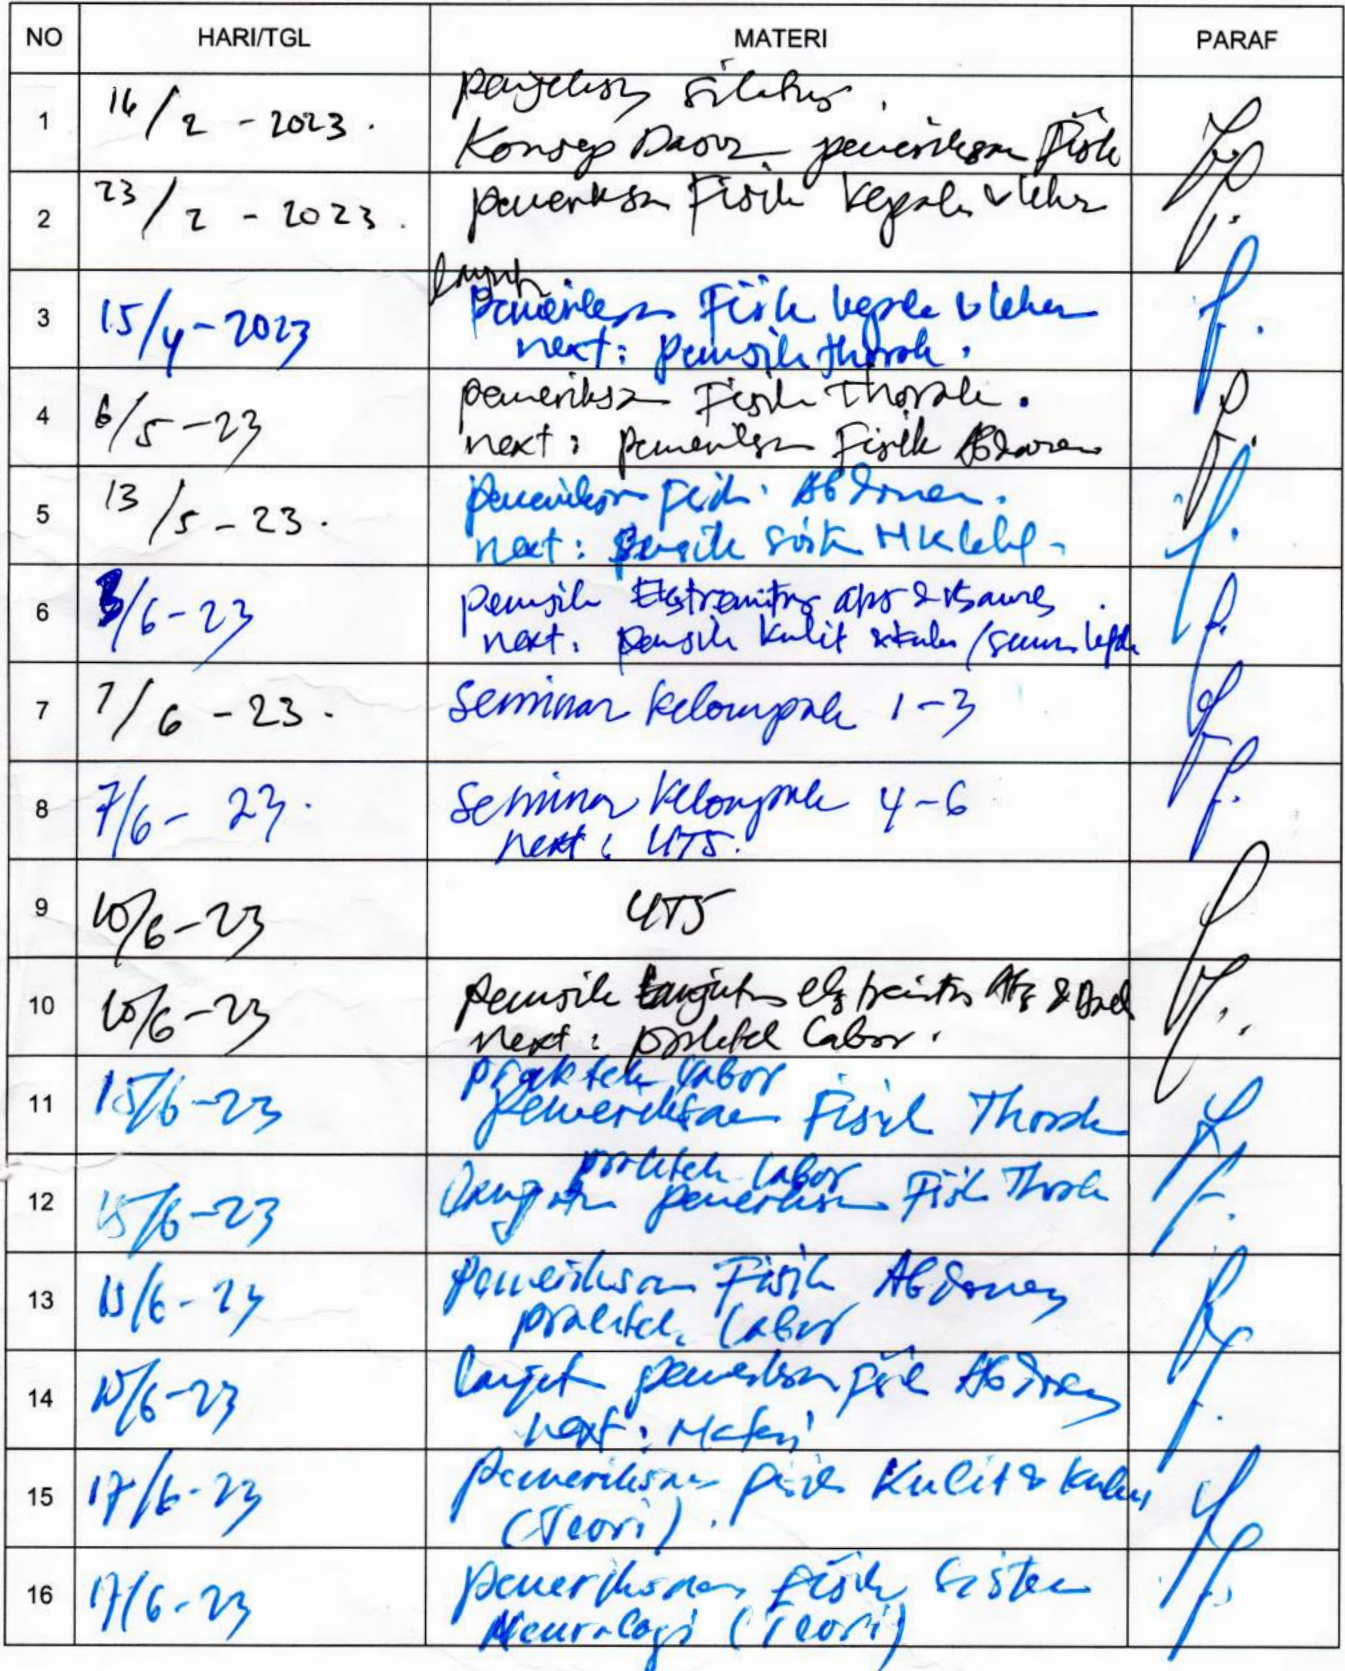 NO HARI/TGL MATERI PARAF
1 16/2 - 2023. penjelasan silabus.
Konsep Dasar pemeriksaan Fisik
2 23/2 - 2023. pemeriksaan Fisik kepala & leher
lanjut
3 15/4 - 2023 pemeriksaan Fisik kepala & leher
next: pemfisik thorak.
4 6/5 - 23 pemeriksaan Fisik Thorak.
next: pemeriksaan Fisik Abdomen
5 13/5 - 23. pemeriksaan Fisik Abdomen.
next: pemfisik
6 3/6 - 23 pemfisik Ekstremitas atas & Bawah
next. pemfisik kulit & kuku /
7 7/6 - 23. Seminar kelompok 1-3
8 7/6 - 23. Seminar kelompok 4-6
next: UTS.
9 10/6 - 23 UTS
10 10/6 - 23 pemfisik lanjutan ekstremitas
next: praktek labor.
11 15/6 - 23 praktek labor
pemeriksaan Fisik Thorak
praktek labor
12 15/6 - 23 lanjutan pemeriksaan Fisik Thorak
13 15/6 - 23 pemeriksaan Fisik Abdomen
praktek labor
14 15/6 - 23 lanjut pemeriksaan fisik Abdomen
next: Materi
15 17/6 - 23 pemeriksaan fisik Kulit & kuku
(Teori).
16 17/6 - 23 pemeriksaan fisik Sistem
Neurologi (Teori)